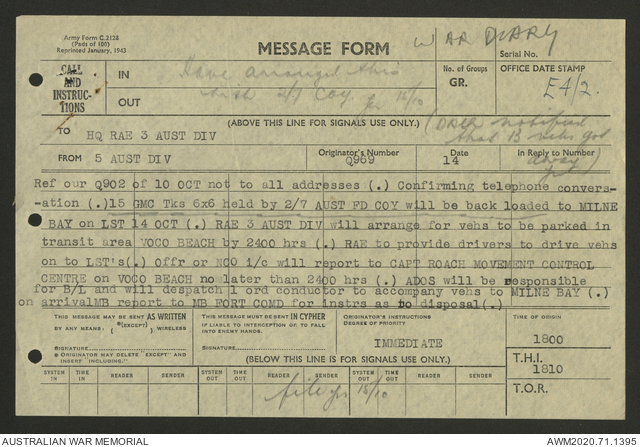 Army Form C.2128
(Pads of 100)
Reprinted January, 1943
MESSAGE FORM
WAR DIARY
Serial No.
CALL AND INSTRUC-TIONS
IN
OUT
Have arranged this
with 2/7 Coy
16/10
No. of Groups
GR.
OFFICE DATE STAMP
E4/2.
(ABOVE THIS LINE FOR SIGNALS USE ONLY.)
notified
that 13 vehs
away
TO HQ RAE 3 AUST DIV
FROM 5 AUST DIV
Originator's Number
Q969
Date
14
In Reply to Number
Ref our Q902 of 10 OCT not to all addresses (.) Confirming telephone convers-
-ation (.)15 GMC Tks 6x6 held by 2/7 AUST FD COY will be back loaded to MILNE
BAY on LST 14 OCT (.) RAE 3 AUST DIV will arrange for vehs to be parked in
transit area VOCO BEACH by 2400 hrs (.) RAE to provide drivers to drive vehs
on to LST's(.) Offr or NCO i/c will report to CAPT ROACH MOVEMENT CONTROL
CENTRE on VOCO BEACH no later than 2400 hrs (.) ADOS will be responsible
for B/L and will despatch 1 ord conductor to accompany vehs to MILNE BAY (.)
on arrivalMB report to MB FORT COMD for instrs as to disposal(.)
THIS MESSAGE MAY BE SENT AS WRITTEN
BY ANY MEANS (*(EXCEPT) ) WIRELESS
SIGNATURE
* ORIGINATOR MAY DELETE "EXCEPT" AND
INSERT "INCLUDING."
THIS MESSAGE MUST BE SENT IN CYPHER
IF LIABLE TO INTERCEPTION OR TO FALL
INTO ENEMY HANDS.
SIGNATURE
ORIGINATOR'S INSTRUCTIONS
DEGREE OF PRIORITY
IMMEDIATE
TIME OF ORIGIN
1800
T.H.I.
1810
T.O.R.
(BELOW THIS LINE IS FOR SIGNALS USE ONLY.)
SYSTEM IN
TIME IN
READER
SENDER
SYSTEM OUT
TIME OUT
READER
SENDER
SYSTEM OUT
TIME OUT
READER
SENDER
file
15/10
AUSTRALIAN WAR MEMORIAL
AWM2020.71.1395